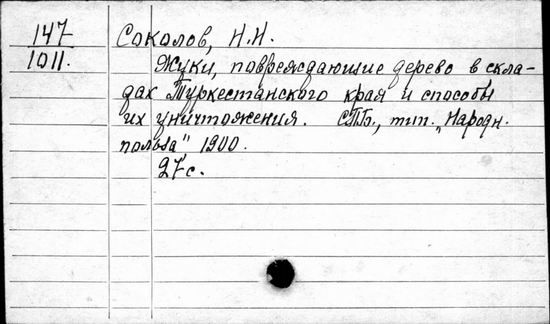 147
1011.
Соколов, Н.Н.
Жуки, повреждающие дерево в скла-
дах Туркестанского края и способы
их уничтожения. СПБ., тип. „Народн.
польза" 1900.
27 с.